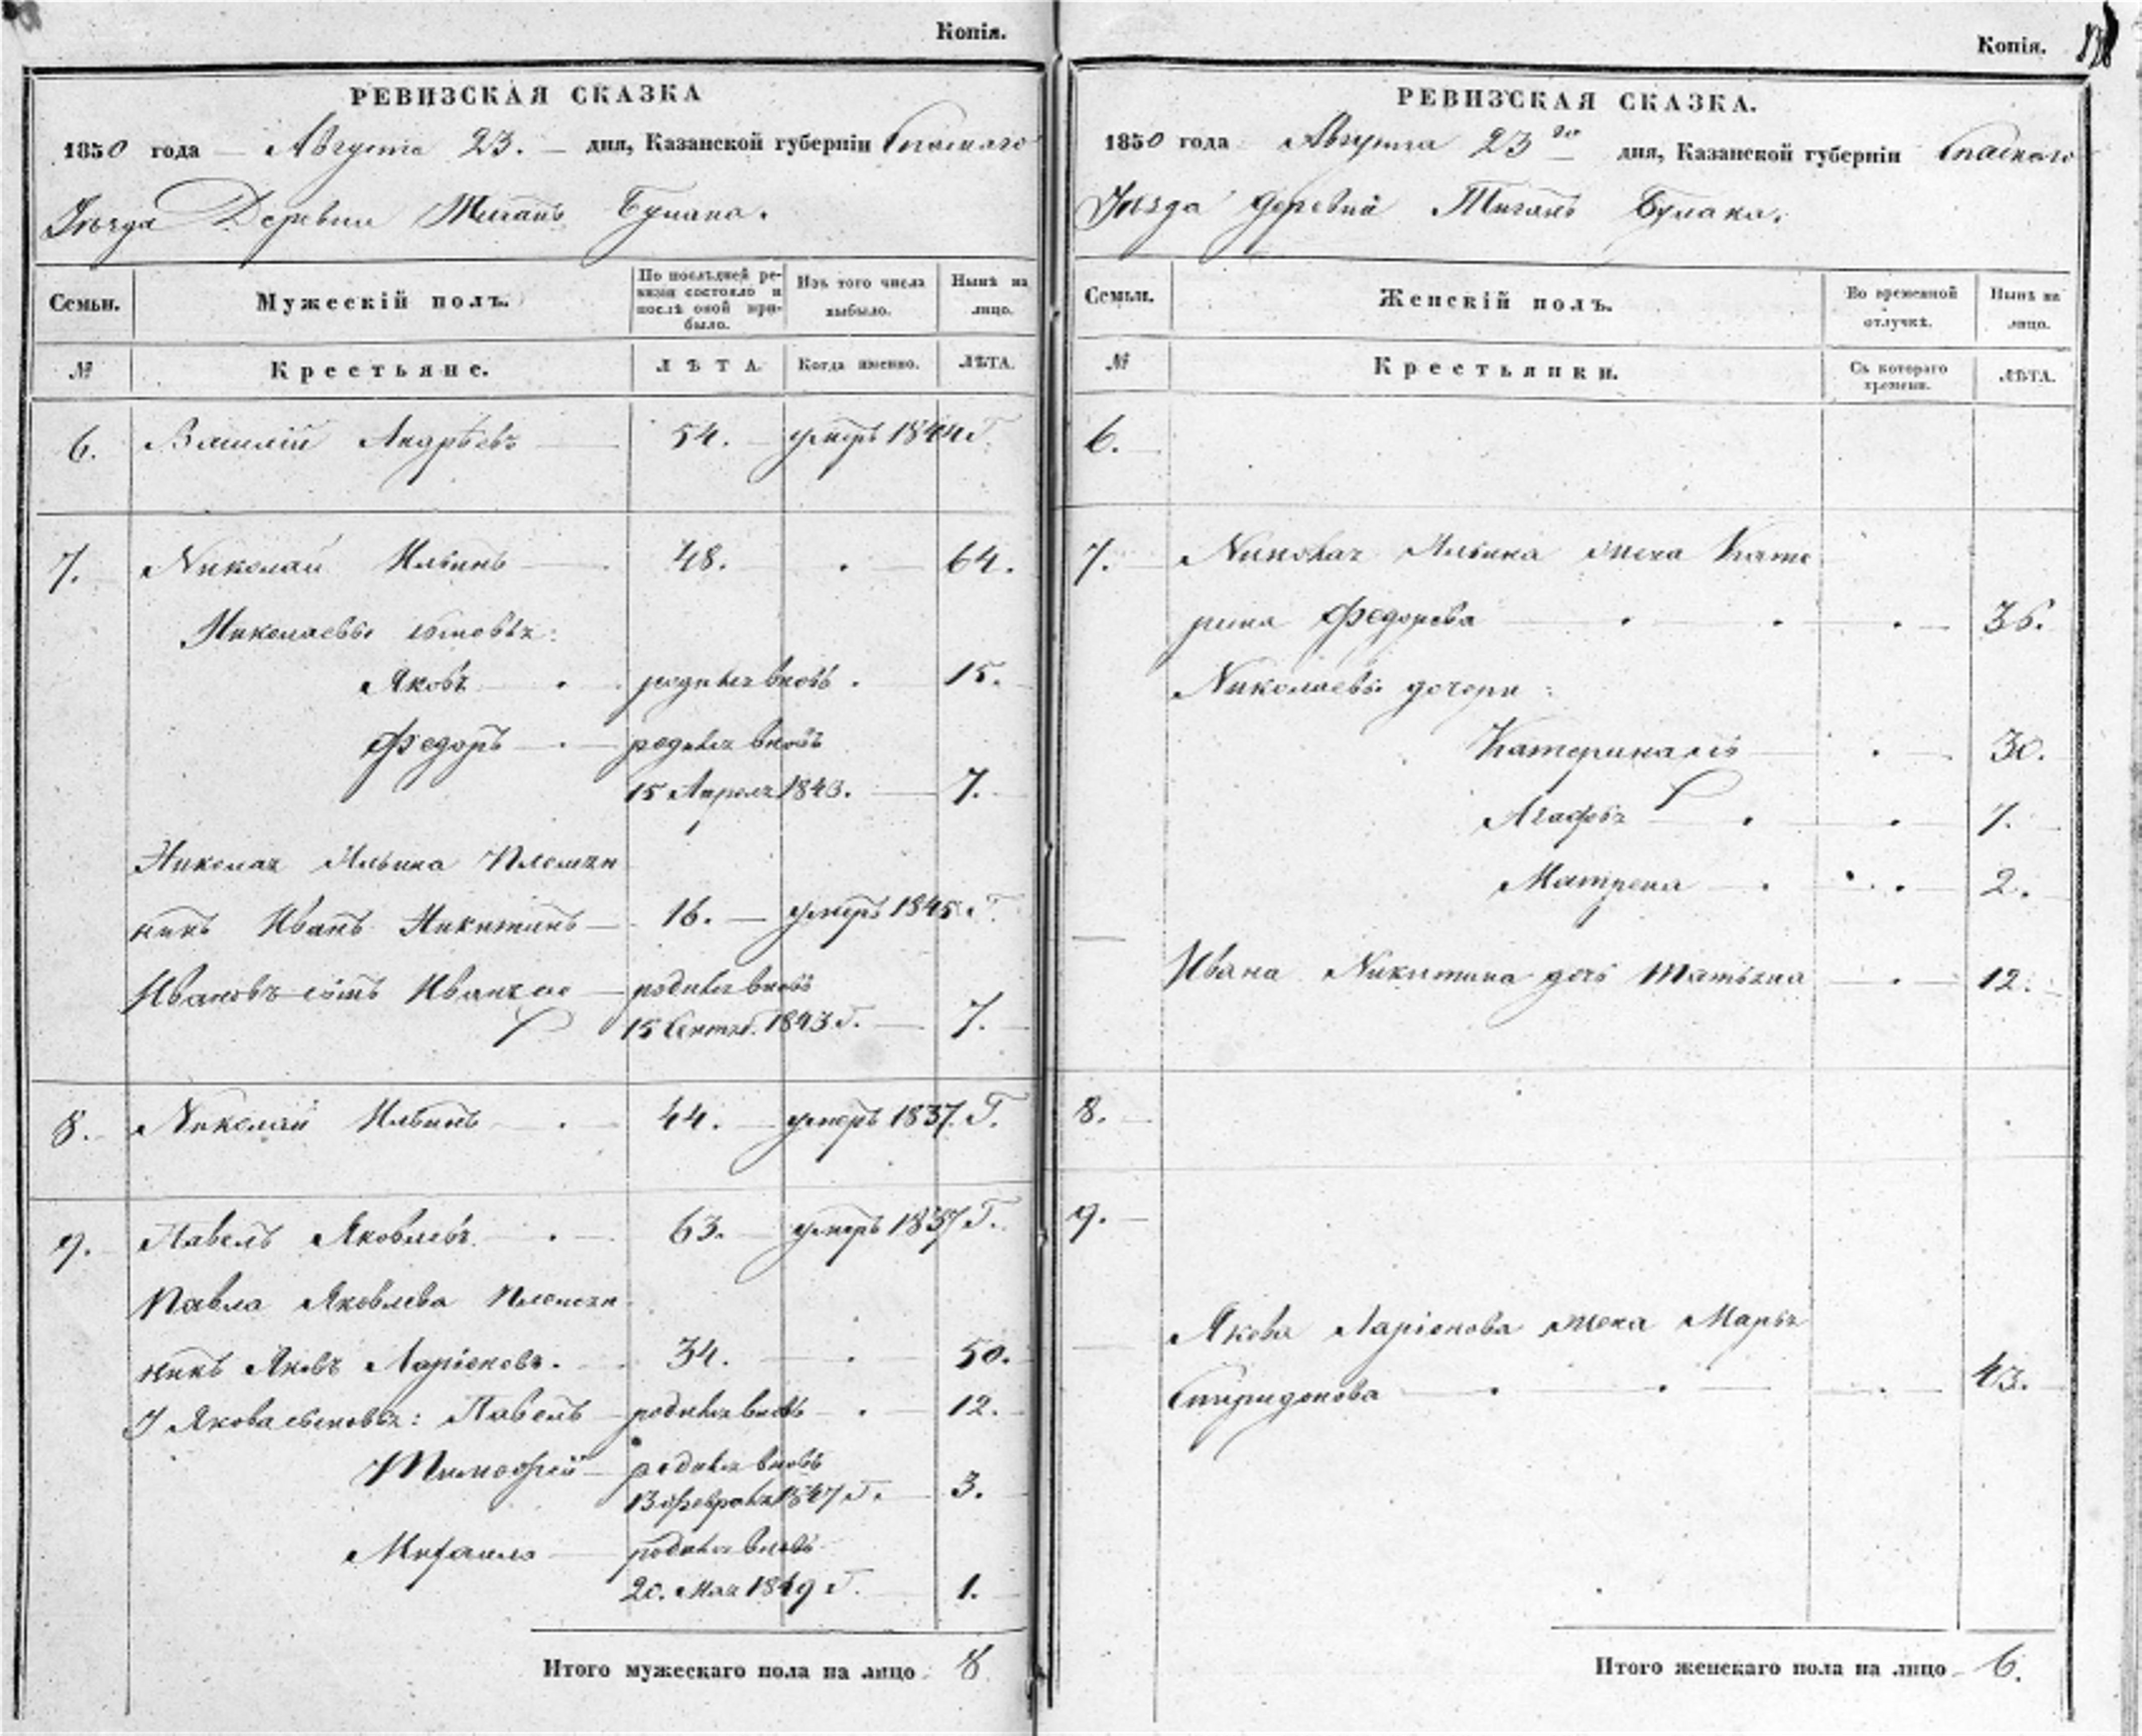 Копія.
РЕВИЗСКАЯ СКАЗКА
1850 года Августа 23. дня, Казанской губерніи Спаскаго
Уѣзда Деревни Тиганъ Булака.
Семьи. Мужескій полъ. По послѣдней ревизіи состояло и послѣ оной прибыло. Изъ того числа выбыло. Нынѣ на лицо.
№ Крестьяне. ЛѢТА. Когда именно. ЛѢТА.
6. Василій Андрѣевъ 54. умеръ 1844 Г.
7. Николай Ильинъ 48. 64.
Николаевы сыновья:
Яковъ родился вновь. 15.
Федоръ родился вновь
15 Апреля 1843. 7.
Николая Ильина Племян
никъ Иванъ Никитинъ 16. умеръ 1845 Г.
Ивановъ сынъ Иванъ родился вновь
15 Сентяб. 1843 Г. 7.
8. Николай Ильинъ 44. умеръ 1837. Г.
9. Павелъ Яковлевъ 63. умеръ 1837 Г.
Павла Яковлева Племян
никъ Яковъ Ларіоновъ. 34. 50.
У Якова сыновья: Павелъ родился вновь 12.
Тимофей родился вновь
13 Февраля 1847 Г. 3.
Михаила родился вновь
20. Мая 1849 Г. 1.
Итого мужескаго пола на лицо 8
Копія.
РЕВИЗСКАЯ СКАЗКА.
1850 года Августа 23 го дня, Казанской губерніи Спаскаго
Уѣзда деревни Тиганъ Булака.
Семьи. Женскій полъ. Во временной отлучкѣ. Нынѣ на лицо.
№ Крестьянки. Съ котораго времени. ЛѢТА.
6.
7. Николая Ильина жена Кате
рина Федорова 36.
Николаевы дочери:
Катерина 30.
Агафья 7.
Матрена 2.
Ивана Никитина дочь Татьяна 12.
8.
9.
Якова Ларіонова жена Марья
Спиридонова 43.
Итого женскаго пола на лицо 6.